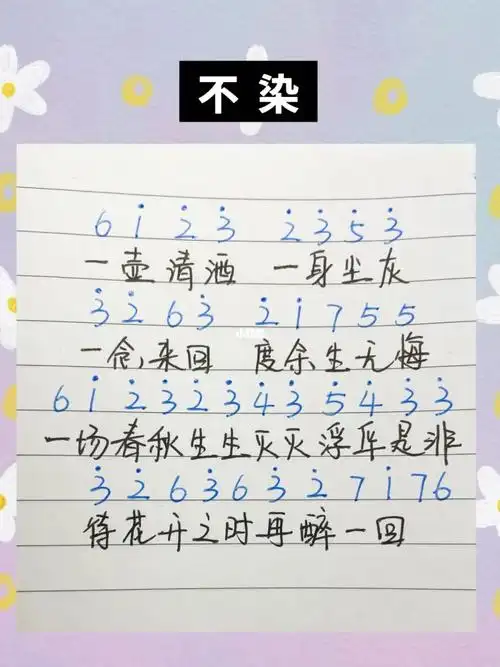 不染
6 1̇ 2̇ 3̇ 2̇ 3̇ 5̇ 3̇
一壶清酒 一身尘灰
3̇ 2̇ 6 3̇ 2̇ 1̇ 7 5 5
一念来回 度余生无悔
6 1̇ 2̇ 3̇ 2̇ 3̇ 4̇ 3̇ 5̇ 4̇ 3̇ 3̇
一场春秋生生灭灭浮华是非
3̇ 2̇ 6 3̇ 6 3̇ 2̇ 7 1̇ 7 6
待花开之时再醉一回